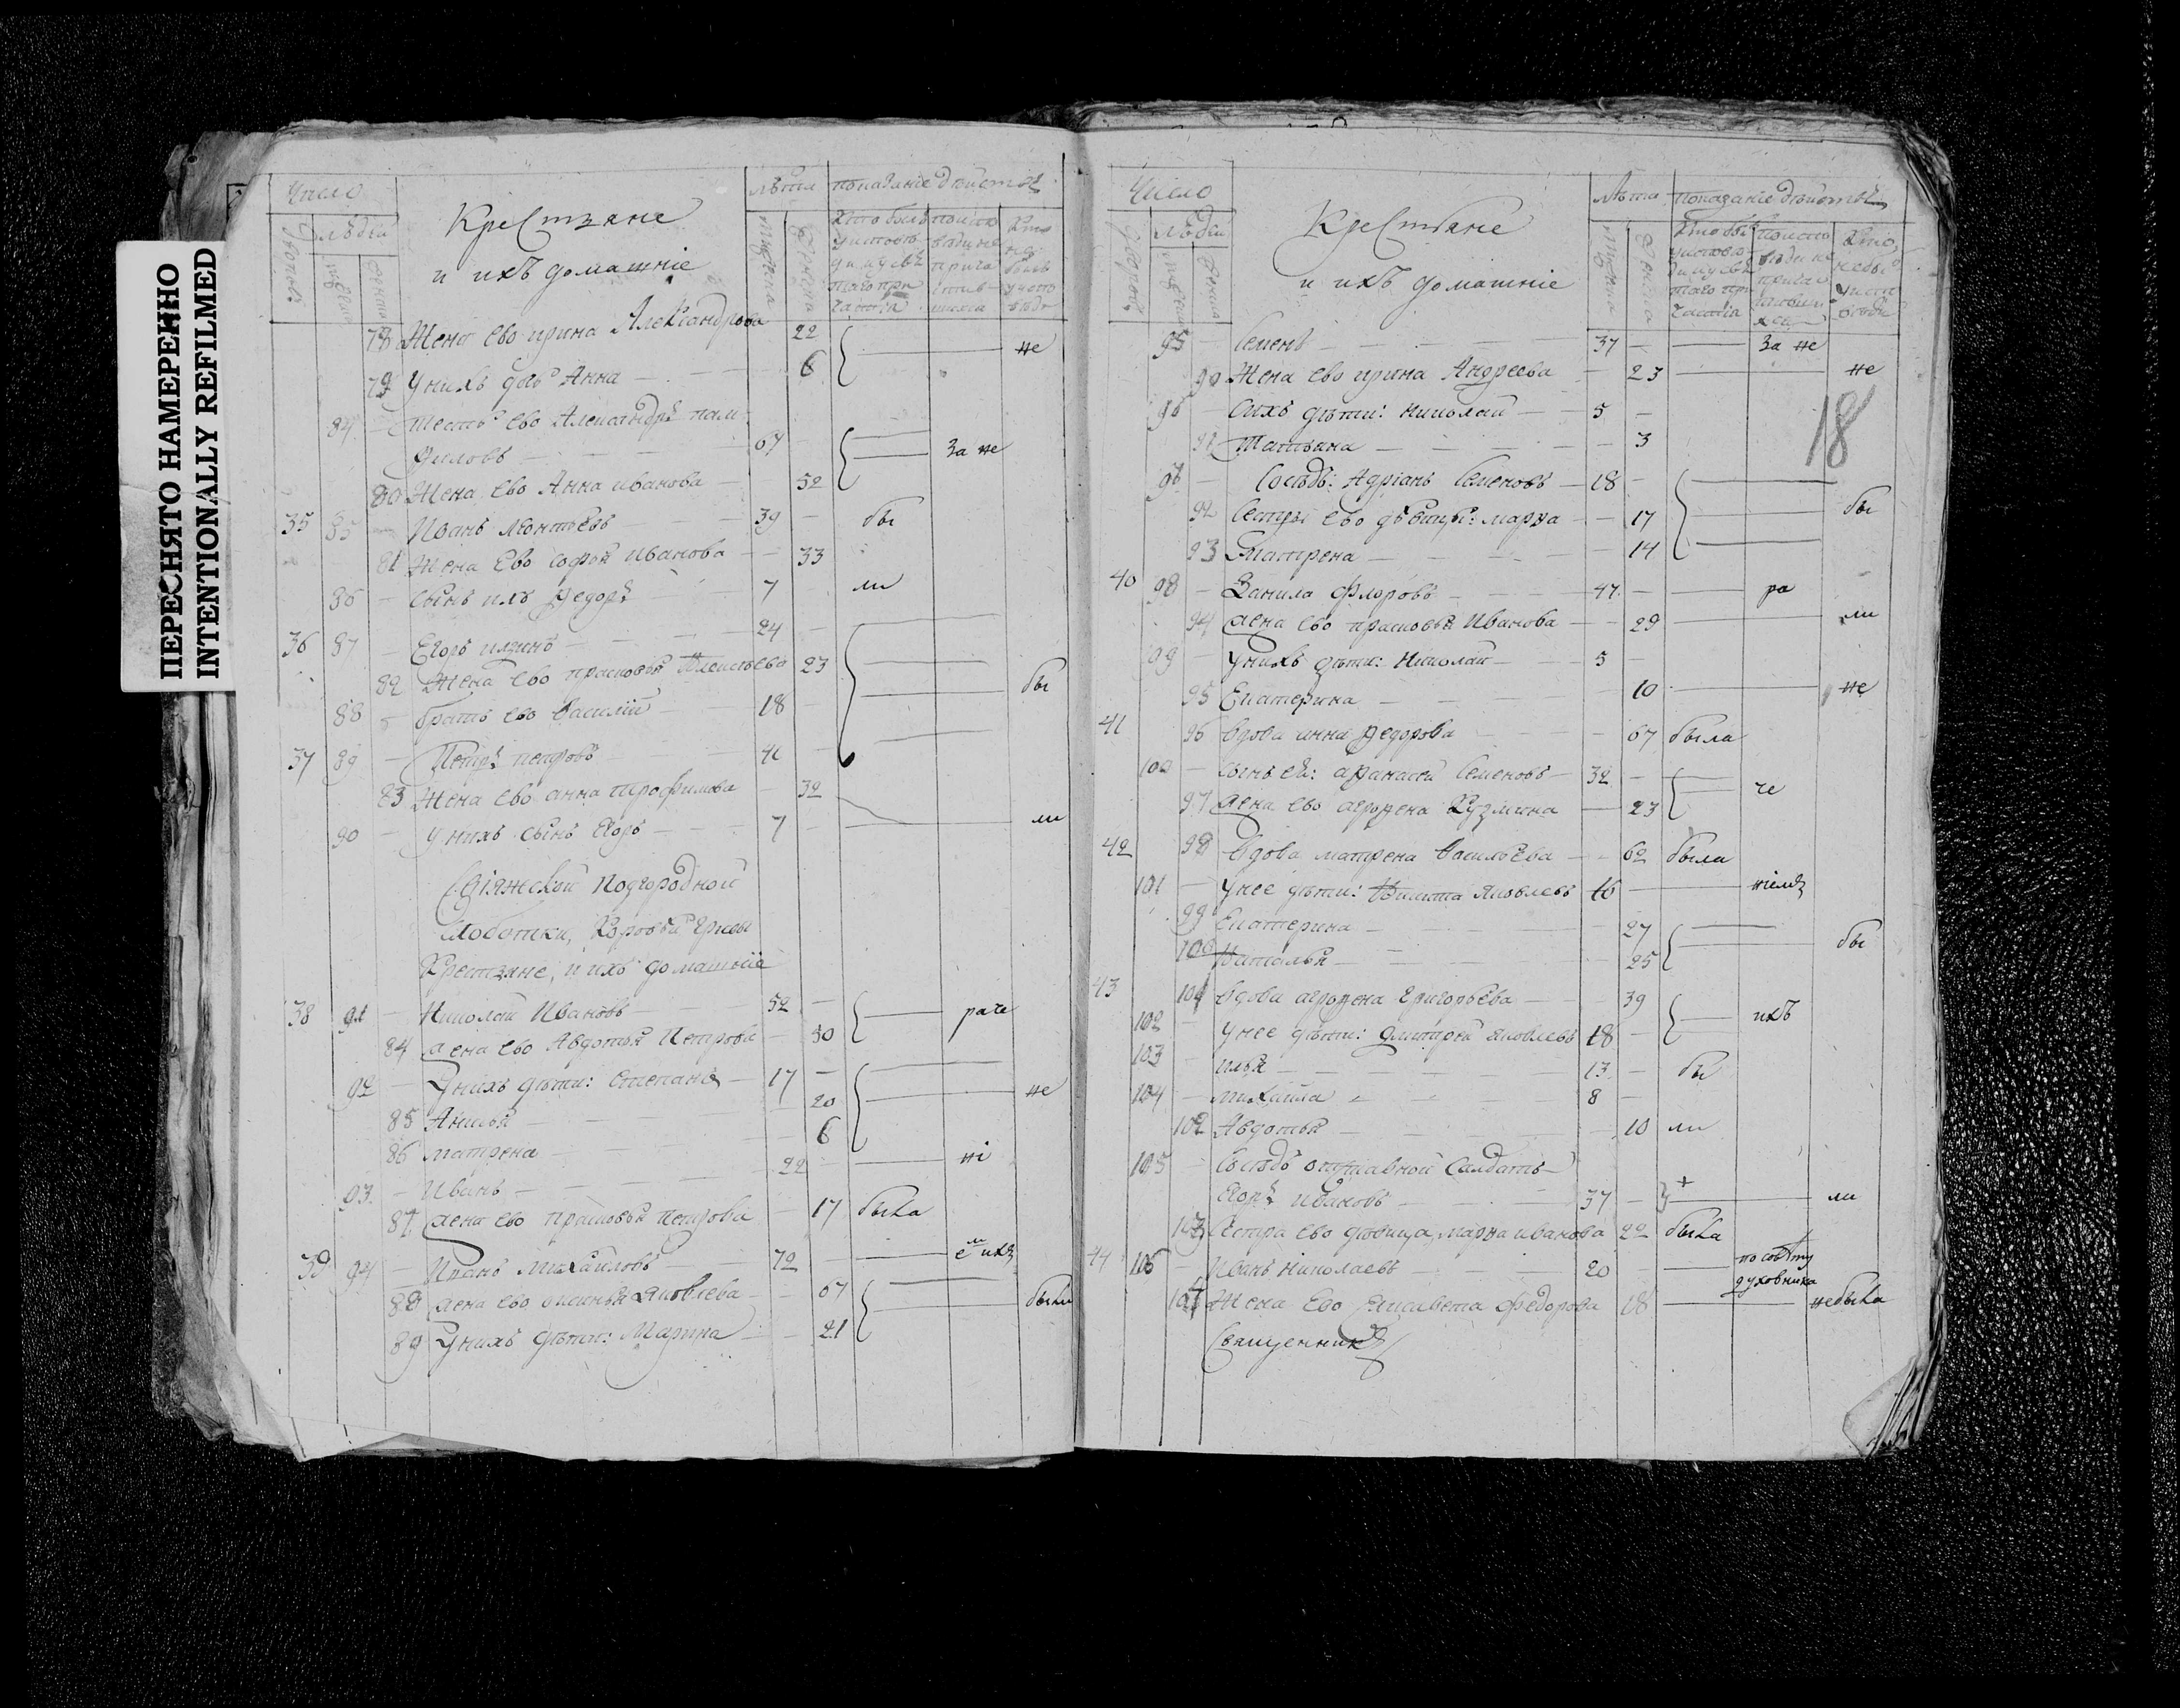 ПЕРЕСНЯТО НАМЕРЕННО
INTENTIONALLY REFILMED
Число лѣта показаніе дѣйствъ
дворовъ людей
Крестяне
и ихъ домашніе
78 Жена ево ирина Александрова 22 не
79 у нихъ дочь Анна 6
84 тесть ево Александръ
67 за не
80 Жена ево Анна иванова 52
35 85 Иванъ леонтьевъ 39 бы
81 Жена Ево софья иванова 33
86 сынъ ихъ Федоръ 7 ли
36 87 Егоръ 24
82 Жена ево прасковья Алексѣева 23 бы
88 братъ ево василій 18
37 89 Петръ петровъ
83 Жена ево анна трофимова 32
90 у нихъ сынъ Егоръ 7 ли
Свіяжской Подгородной
слободки, Коровьи Гривы
Крестяне, и ихъ домашніе
38 91 Николай Ивановъ 52 раче
84 жена ево Авдотья Петрова 50
92 у нихъ дѣти: Степанъ 17 не
20
85
6
86 матрена ні
93 Иванъ 22
87 жена ево прасковья петрова 17 была
39 94 Иванъ Михайловъ 72 ихъ
88 жена ево аксинья Яковлева 67 были
89 у нихъ дѣти: Марина 21
Число лѣта показаніе дѣйствъ
дворовъ людей
Крестяне
и ихъ домашніе
95 Семенъ 37 за не
90 Жена ево ирина Андреева 23 не
96 у ихъ дѣти: николай 5
18
91 Татьяна 3
97 Сосѣдъ: Адріанъ Семеновъ 18
92 Сестры ево дѣвицы: марфа 17 бы
93 Матрена 14
40 98 Данила Флоровъ 47 ра
94 жена ево прасковья Иванова 29 ли
99 у нихъ дѣти: Николай 5
95 Екатерина 10 не
41 96 вдова анна Федорова 67 была
100 сынъ ея: афанасей Семеновъ 32 че
97 жена ево агрофена Кузмина 23
42 98 вдова матрена васильева 62 была
101 у нее дѣти: Никита Яковлевъ 16 ніемъ
99 Екатерина 27 бы
100 Наталья 25
43 101 вдова агрофена Григорьева 39 ихъ
102 у нее дѣти: Дмитрей яковлевъ 18
103 илья 13 бы
104 михайла 8
102 Авдотья 10 ли
105 Сосѣдъ отставной салдатъ
Егоръ ивановъ 37 + ли
103 Сестра ево дѣвица, марфа иванова 22 была
44 106 Иванъ николаевъ 20 по совѣту
духовника
104 Жена Ево Елисавета Федорова 18 не была
Священникъ